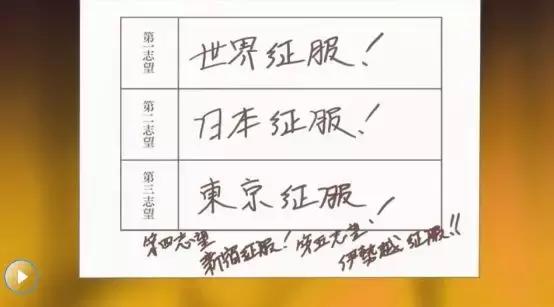 第一志望
世界征服!
第二志望
日本征服!
第三志望
東京征服!
第四志望
新宿征服!
第五志望
伊勢越征服!!